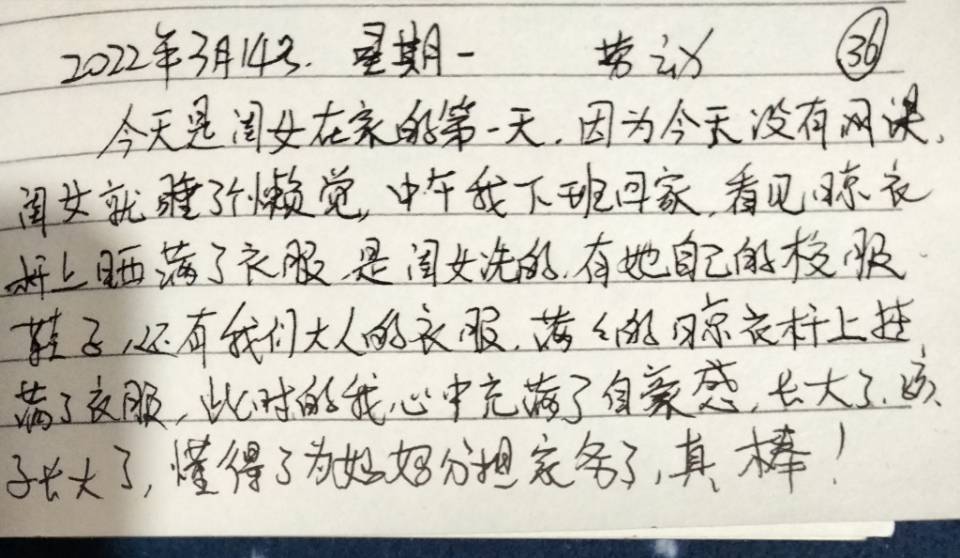 2022年3月14号. 星期一 劳动 36
今天是闺女在家的第一天，因为今天没有网课，
闺女就睡了个懒觉，中午我下班回家，看见晾衣
杆上晒满了衣服，是闺女洗的，有她自己的校服
鞋子，还有我们大人的衣服，满々的晾衣杆上挂
满了衣服，此时的我心中充满了自豪感，长大了，孩
子长大了，懂得了为妈妈分担家务了，真棒！